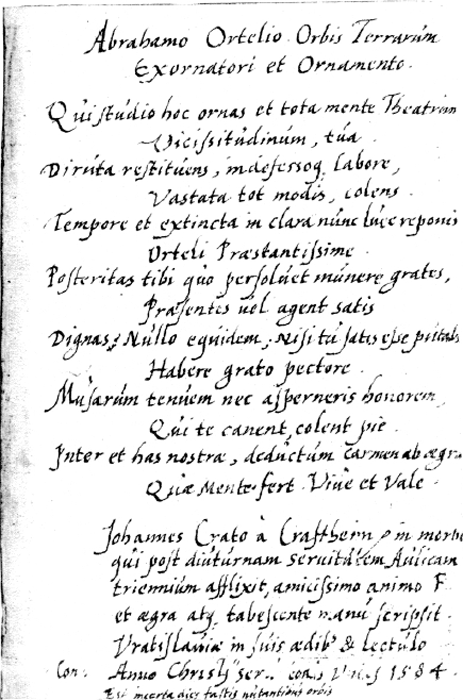 Abrahamo Ortelio Orbis Terrarúm
Exornatori et Ornamento.
Qui studio hoc ornas et tota mente Theatrum
Vicissitudinúm, túa
Dirúta restitúens, indefessoq. labore,
Vastata tot modis, colens.
Tempore et extincta in clara núnc lúce reponis
Orteli Præstantissime.
Posteritas tibi qúo persolúet múnere grates,
Præsentes úel agent satis
Dignas; Núllo eqúidem, Nisi tú satis esse pútabis
Habere grato pectore.
Músarúm tenúem nec asperneris honorem,
Qúi te canent, colent pie.
Inter et has nostra, dedúctúm carmen ab ægra
Qúæ Mente fert. Viúe et Vale.
Johannes Crato à Crafftheim, in morbo
qúi post diútúrnam seruitútem Aúlicam
triennium afflixit, amicissimo animo F
et ægra atq, tabescente manú scripsit.
Vratislauiæ in súis ædib' & lectúlo
Con. Anno Christj 1584.
Est incerta dies fastis nutantibus orbis